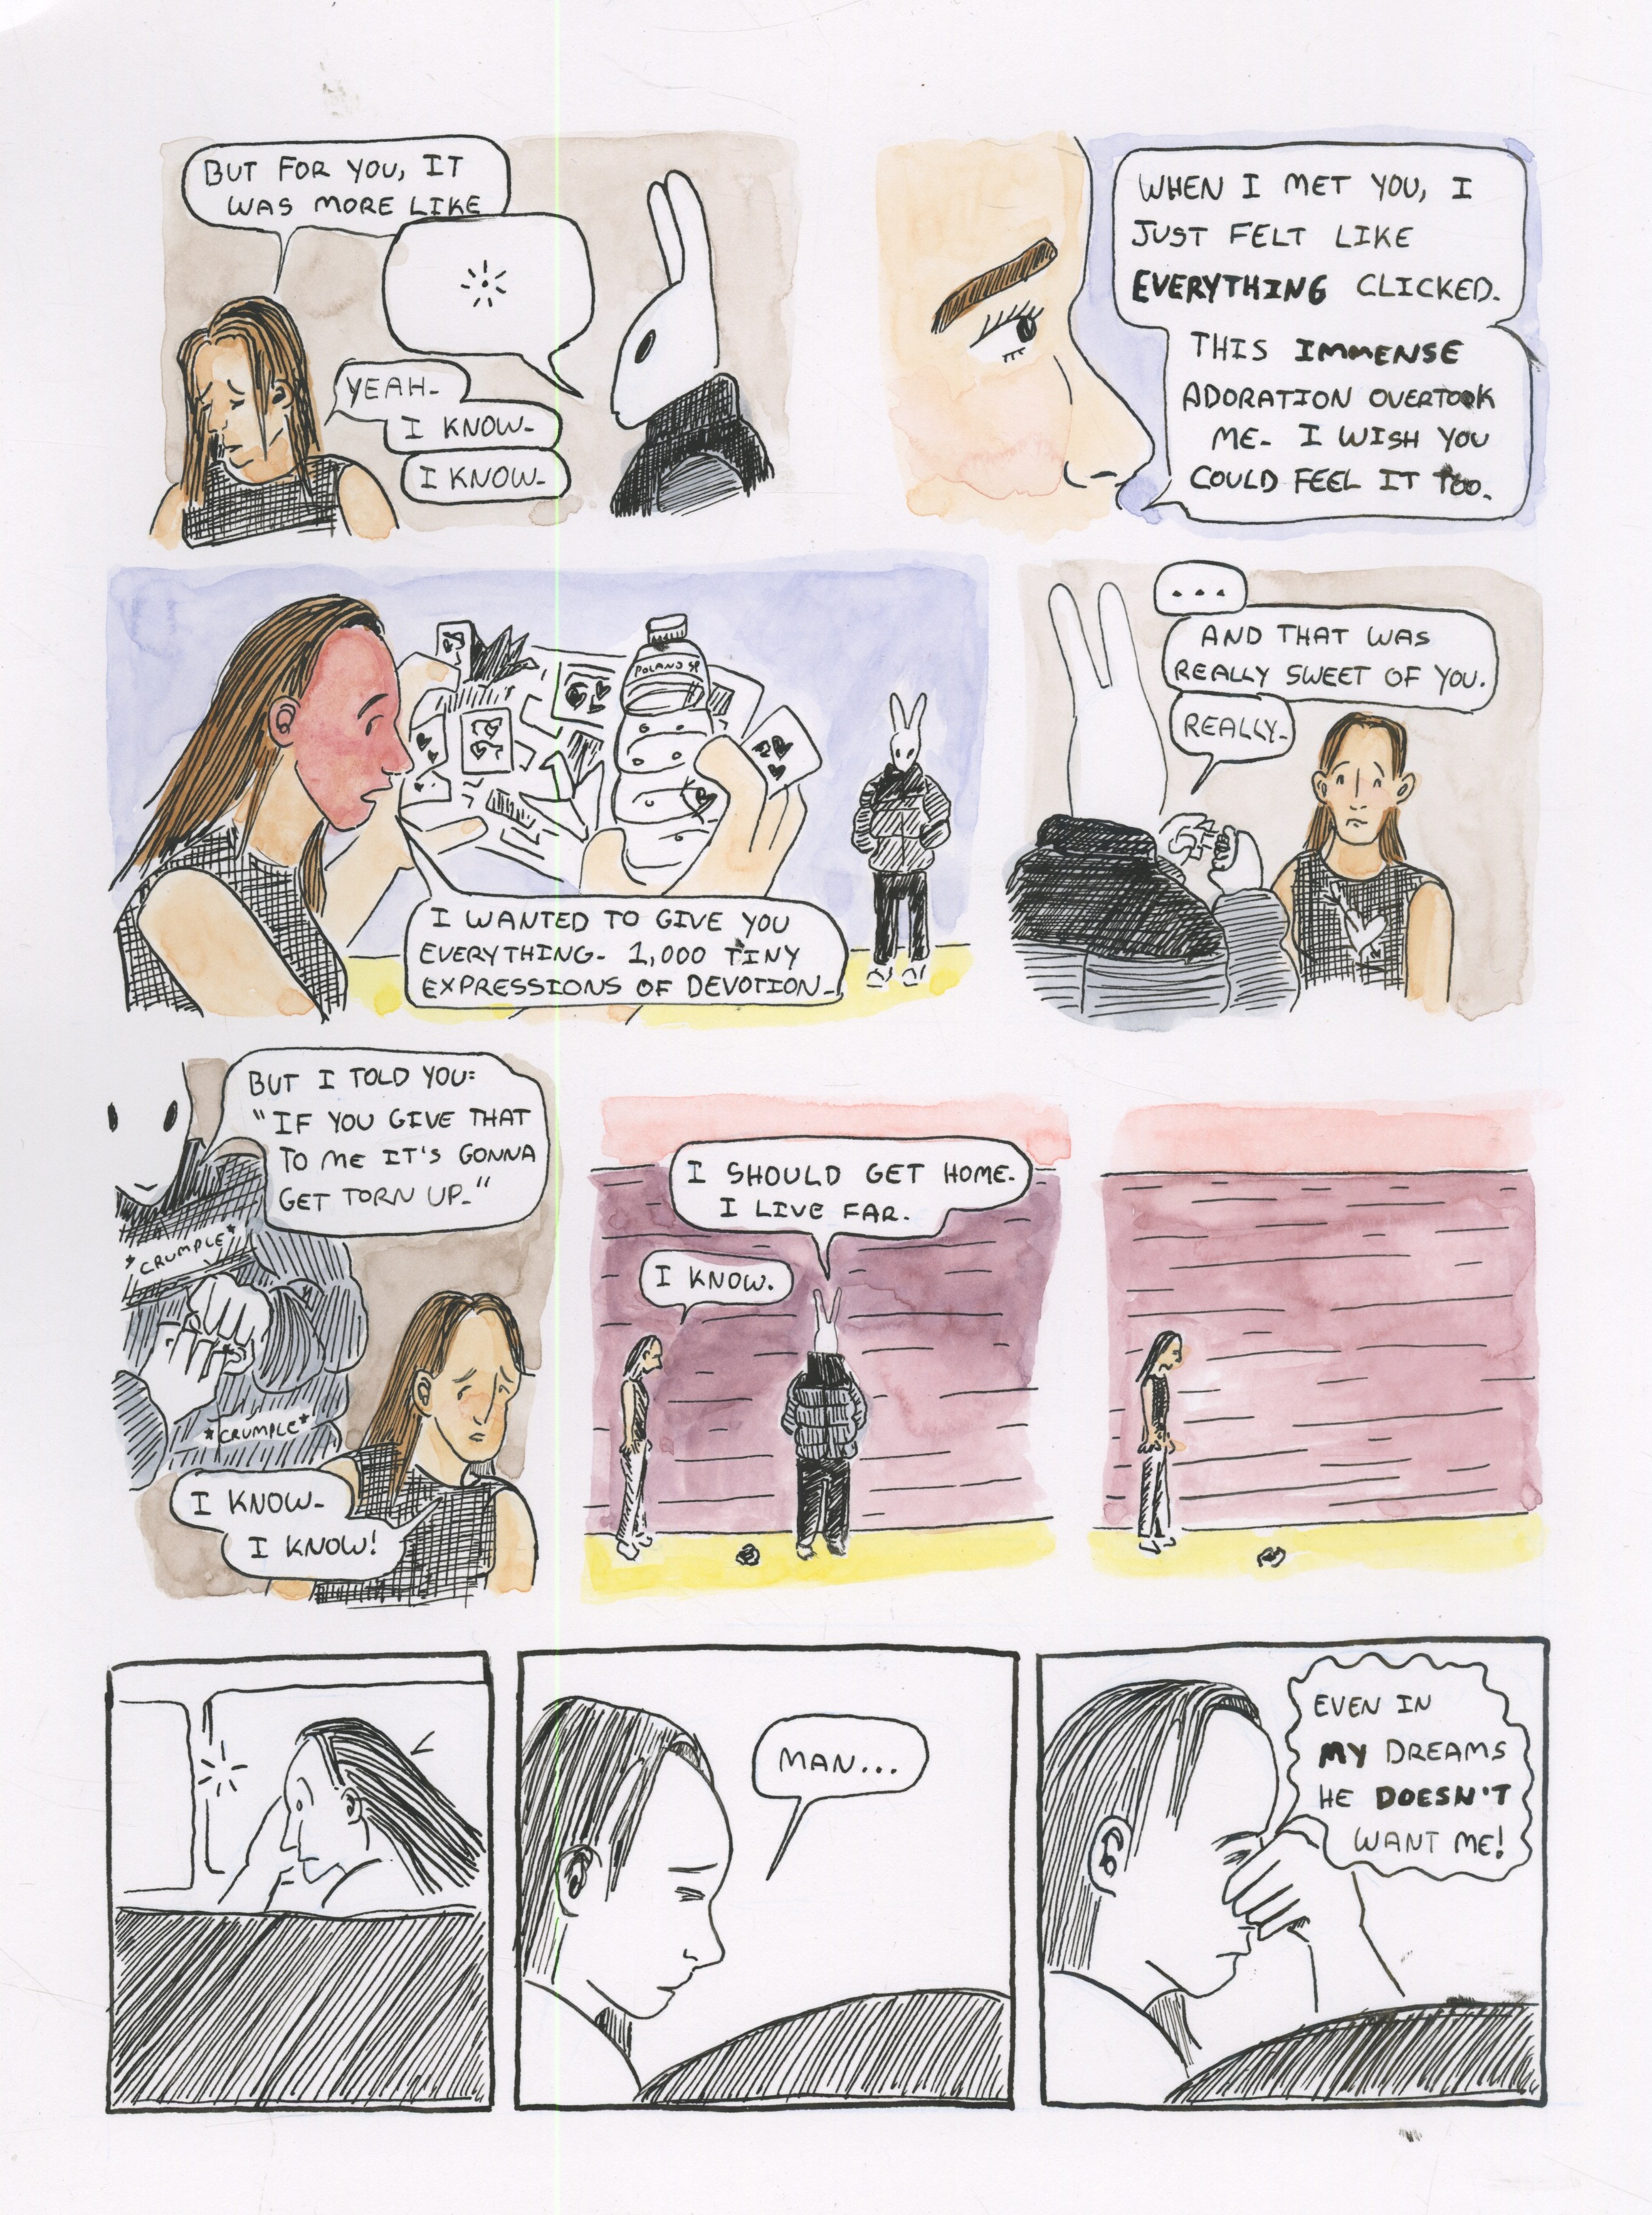 BUT FOR YOU, IT
WAS MORE LIKE
YEAH-
I KNOW-
I KNOW-
WHEN I MET YOU, I
JUST FELT LIKE
EVERYTHING CLICKED.
THIS IMMENSE
ADORATION OVERTOOK
ME- I WISH YOU
COULD FEEL IT TOO.
POLAND SP
I WANTED TO GIVE YOU
EVERYTHING- 1,000 TINY
EXPRESSIONS OF DEVOTION-
...
AND THAT WAS
REALLY SWEET OF YOU.
REALLY-
BUT I TOLD YOU:
"IF YOU GIVE THAT
TO ME IT'S GONNA
GET TORN UP-"
*CRUMPLE*
*CRUMPLE*
I KNOW-
I KNOW!
I SHOULD GET HOME.
I LIVE FAR.
I KNOW.
MAN...
EVEN IN
MY DREAMS
HE DOESN'T
WANT ME!